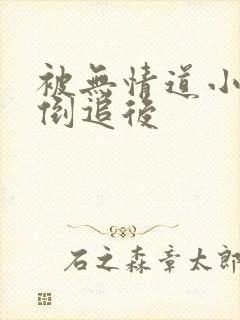 被無情道小
倒追後
石之森章太郎